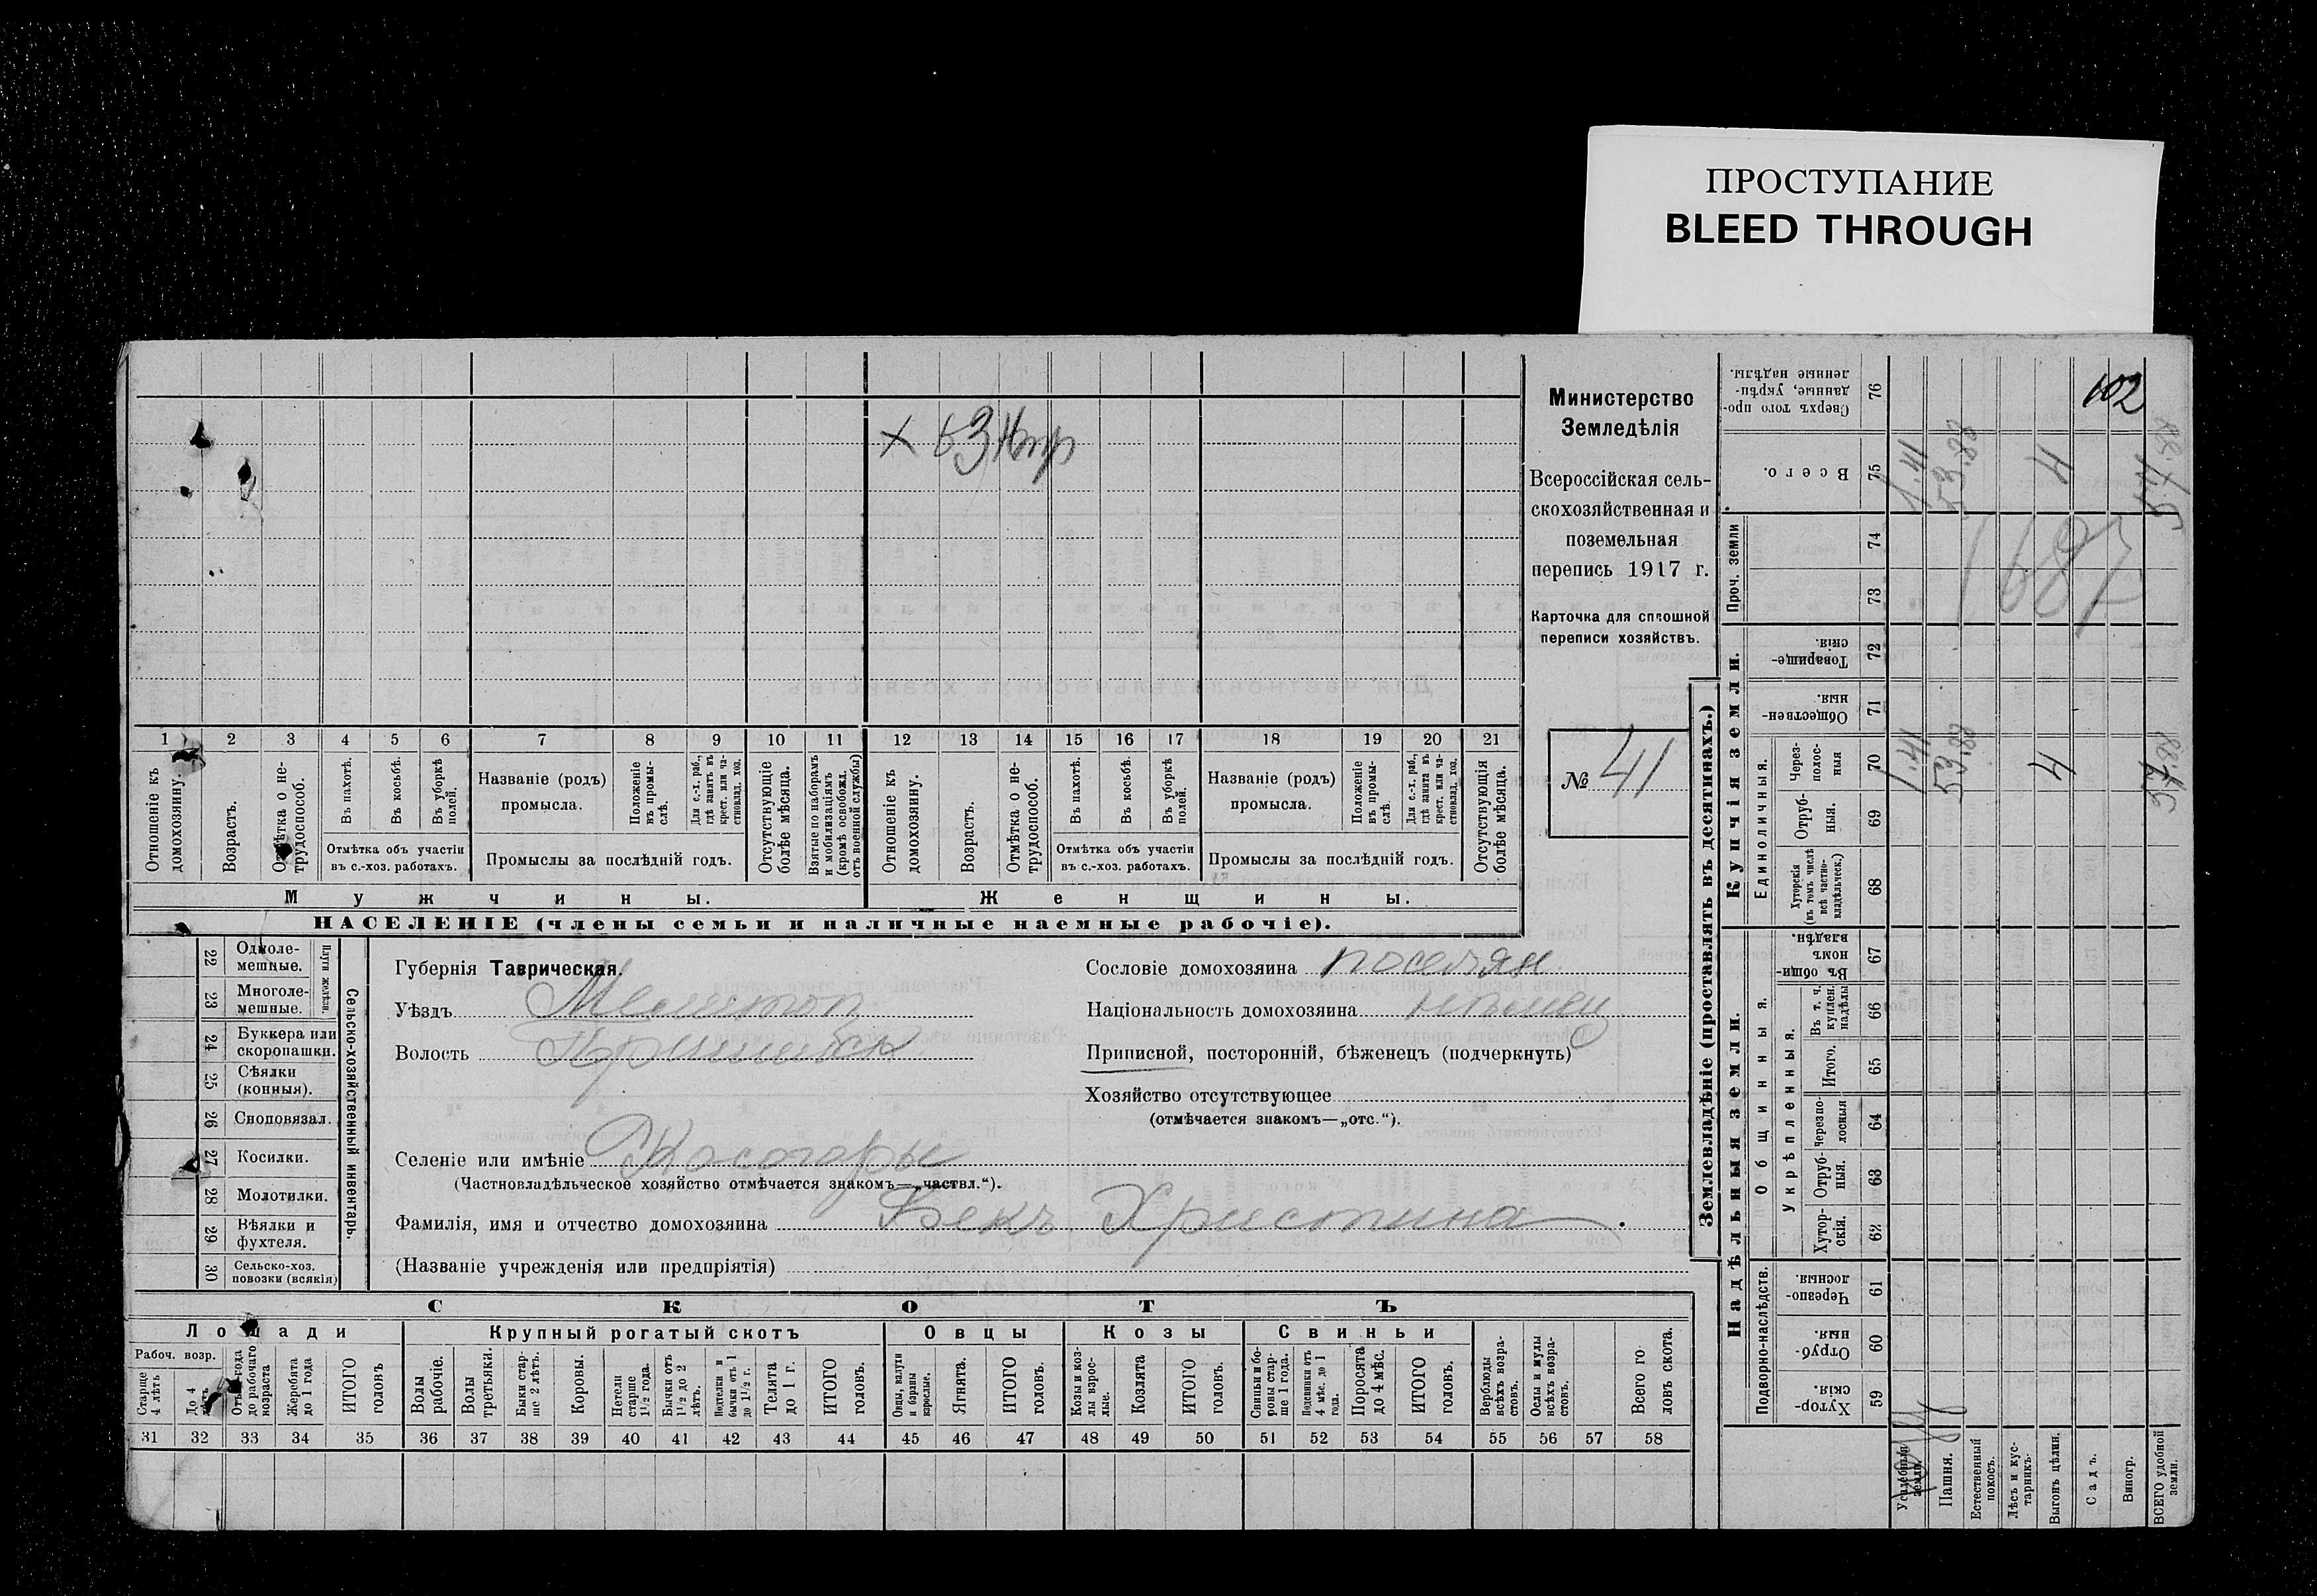 ПРОСТУПАНИЕ
BLEED THROUGH
Министерство
Земледѣлія
Всероссійская сель-
скохозяйственная и
поземельная
перепись 1917 г.
Карточка для сплошной
переписи хозяйствъ.
№ 41
× 53
1 2 3 4 5 6 7 8 9 10 11 12 13 14 15 16 17 18 19 20 21
Отношеніе къ домохозяину.
Возрастъ.
Отмѣтка о не-трудоспособ.
Въ пахотѣ.
Въ косьбѣ.
Въ уборкѣ полей.
Отмѣтка объ участіи
въ с.-хоз. работахъ.
Названіе (родъ)
промысла.
Положеніе въ промы-слѣ.
Для с.-х. раб., гдѣ занятъ въ крест. или ча-стновлад. хоз.
Промыслы за послѣдній годъ.
Отсутствующіе болѣе мѣсяца.
Взятые по наборамъ и мобилизаціямъ (кромѣ освобожд. отъ военной службы)
Отношеніе къ домохозяину.
Возрастъ.
Отмѣтка о не-трудоспособ.
Въ пахотѣ.
Въ косьбѣ.
Въ уборкѣ полей.
Отмѣтка объ участіи
въ с.-хоз. работахъ.
Названіе (родъ)
промысла.
Положеніе въ промы-слѣ.
Для с.-х. раб., гдѣ занята въ крест. или ча-стновлад. хоз.
Промыслы за послѣдній годъ.
Отсутствующія болѣе мѣсяца.
Мужчины.
Женщины.
НАСЕЛЕНІЕ (члены семьи и наличные наемные рабочіе).
22 Одноле-мешные.
23 Многоле-мешные.
Плуги желѣзн.
24 Буккера или скоропашки.
25 Сѣялки (конныя).
26 Сноповязал.
27 Косилки.
28 Молотилки.
29 Вѣялки и фухтеля.
30 Сельско-хоз. повозки (всякія)
Сельско-хозяйственный инвентарь.
Губернія Таврическая.
Уѣздъ Мелитоп
Волость Пришибск
Селеніе или имѣніе Косогоры
(Частновладѣльческое хозяйство отмѣчается знакомъ—„частвл.“).
Фамилія, имя и отчество домохозяина Бекъ Христина
(Названіе учрежденія или предпріятія)
Сословіе домохозяина поселян
Національность домохозяина нѣмец
Приписной, посторонній, бѣженецъ (подчеркнуть)
Хозяйство отсутствующее
(отмѣчается знакомъ—„отс.“).
СКОТЪ
Лошади
Крупный рогатый скотъ
Овцы
Козы
Свиньи
Рабоч. возр.
Старше 4 лѣтъ
До 4 лѣтъ
Отъ 1 года до рабочаго возраста
Жеребята до 1 года
ИТОГО головъ
Волы рабочіе.
Волы третьяки.
Быки стар-ше 2 лѣтъ.
Коровы.
Нетели старше 1½ года.
Бычки отъ 1½ до 2 лѣтъ.
Подтелки и бычки отъ 1 до 1½ г.
Телята до 1 г.
ИТОГО головъ.
Овцы, валухи и бараны взрослые.
Ягнята.
ИТОГО головъ.
Козы и коз-лы взрос-лые.
Козлята
ИТОГО головъ.
Свиньи и бо-ровы стар-ше 1 года.
Подсвинки отъ 4 мѣс. до 1 года.
Поросята до 4 мѣс.
ИТОГО головъ.
Верблюды всѣхъ возра-стовъ.
Ослы и мулы всѣхъ возра-стовъ.
Всего го-ловъ скота.
31 32 33 34 35 36 37 38 39 40 41 42 43 44 45 46 47 48 49 50 51 52 53 54 55 56 57 58
Землевладѣніе (проставлять въ десятинахъ.)
Надѣльныя земли.
Купчія земли.
Проч. земли
Подворно-наслѣдств.
Общинныя.
Укрѣпленныя.
Единоличныя.
59 Хутор-скія.
60 Отруб-ныя.
61 Черезпо-лосныя.
62 Хутор-скія.
63 Отруб-ныя.
64 Черезпо-лосныя
65 Итого.
66 Въ т. ч. куплен. надѣлы
67 Въ общин-номъ владѣн.
68 Хуторскія (въ томъ числѣ всѣ частно-владѣльческ.)
69 Отруб-ныя.
70 Через-полос-ныя
71 Обществен-ныя.
72 Товарище-скія.
73
74
75 Всего.
76 Сверхъ того про-данные, укрѣп-ленные надѣлы.
Усадебная земля.
Пашня.
Естественный покосъ.
Лѣсъ и кус-тарникъ.
Выгонъ цѣлин.
Садъ.
Виногр.
ВСЕГО удобной земли.
1.41
53.88
4
1.41
53.88
4
102
1687